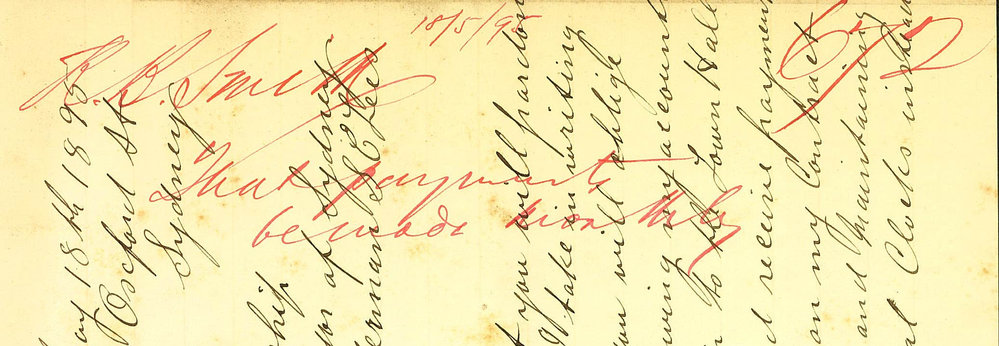 18/5/95
R. B. Smith
That payment
be made monthly
ay 18th 1895
Oxford St
Sydney
hip
or of Sydney
t you will pardon
I take in writing
ou will oblige
wing my account
to the Town Hall
d receive payment
on my Contract
and Maintaining
al Clocks instead